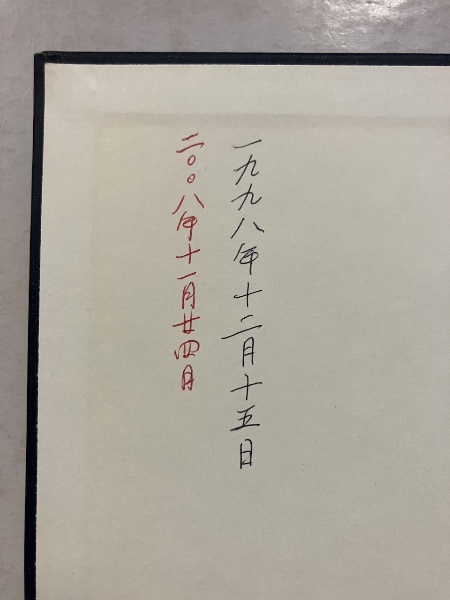 一九九八年十二月十五日
二〇〇八年十一月廿四日